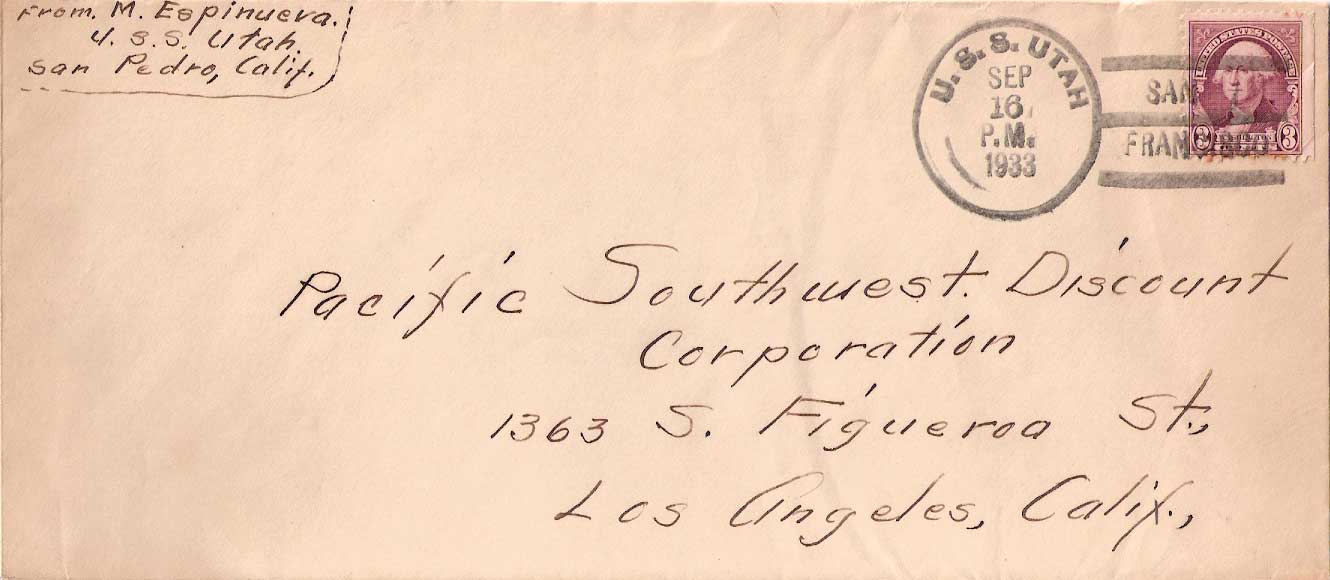 From. M. Espinueva.
U. S. S. Utah.
San Pedro, Calif.
U. S. S. UTAH
SEP
16
P.M.
1933
SAN
FRANCISCO
UNITED STATES POSTAGE
3 3
Pacific Southwest. Discount
Corporation
1363 S. Figueroa St.,
Los Angeles, Calif.,